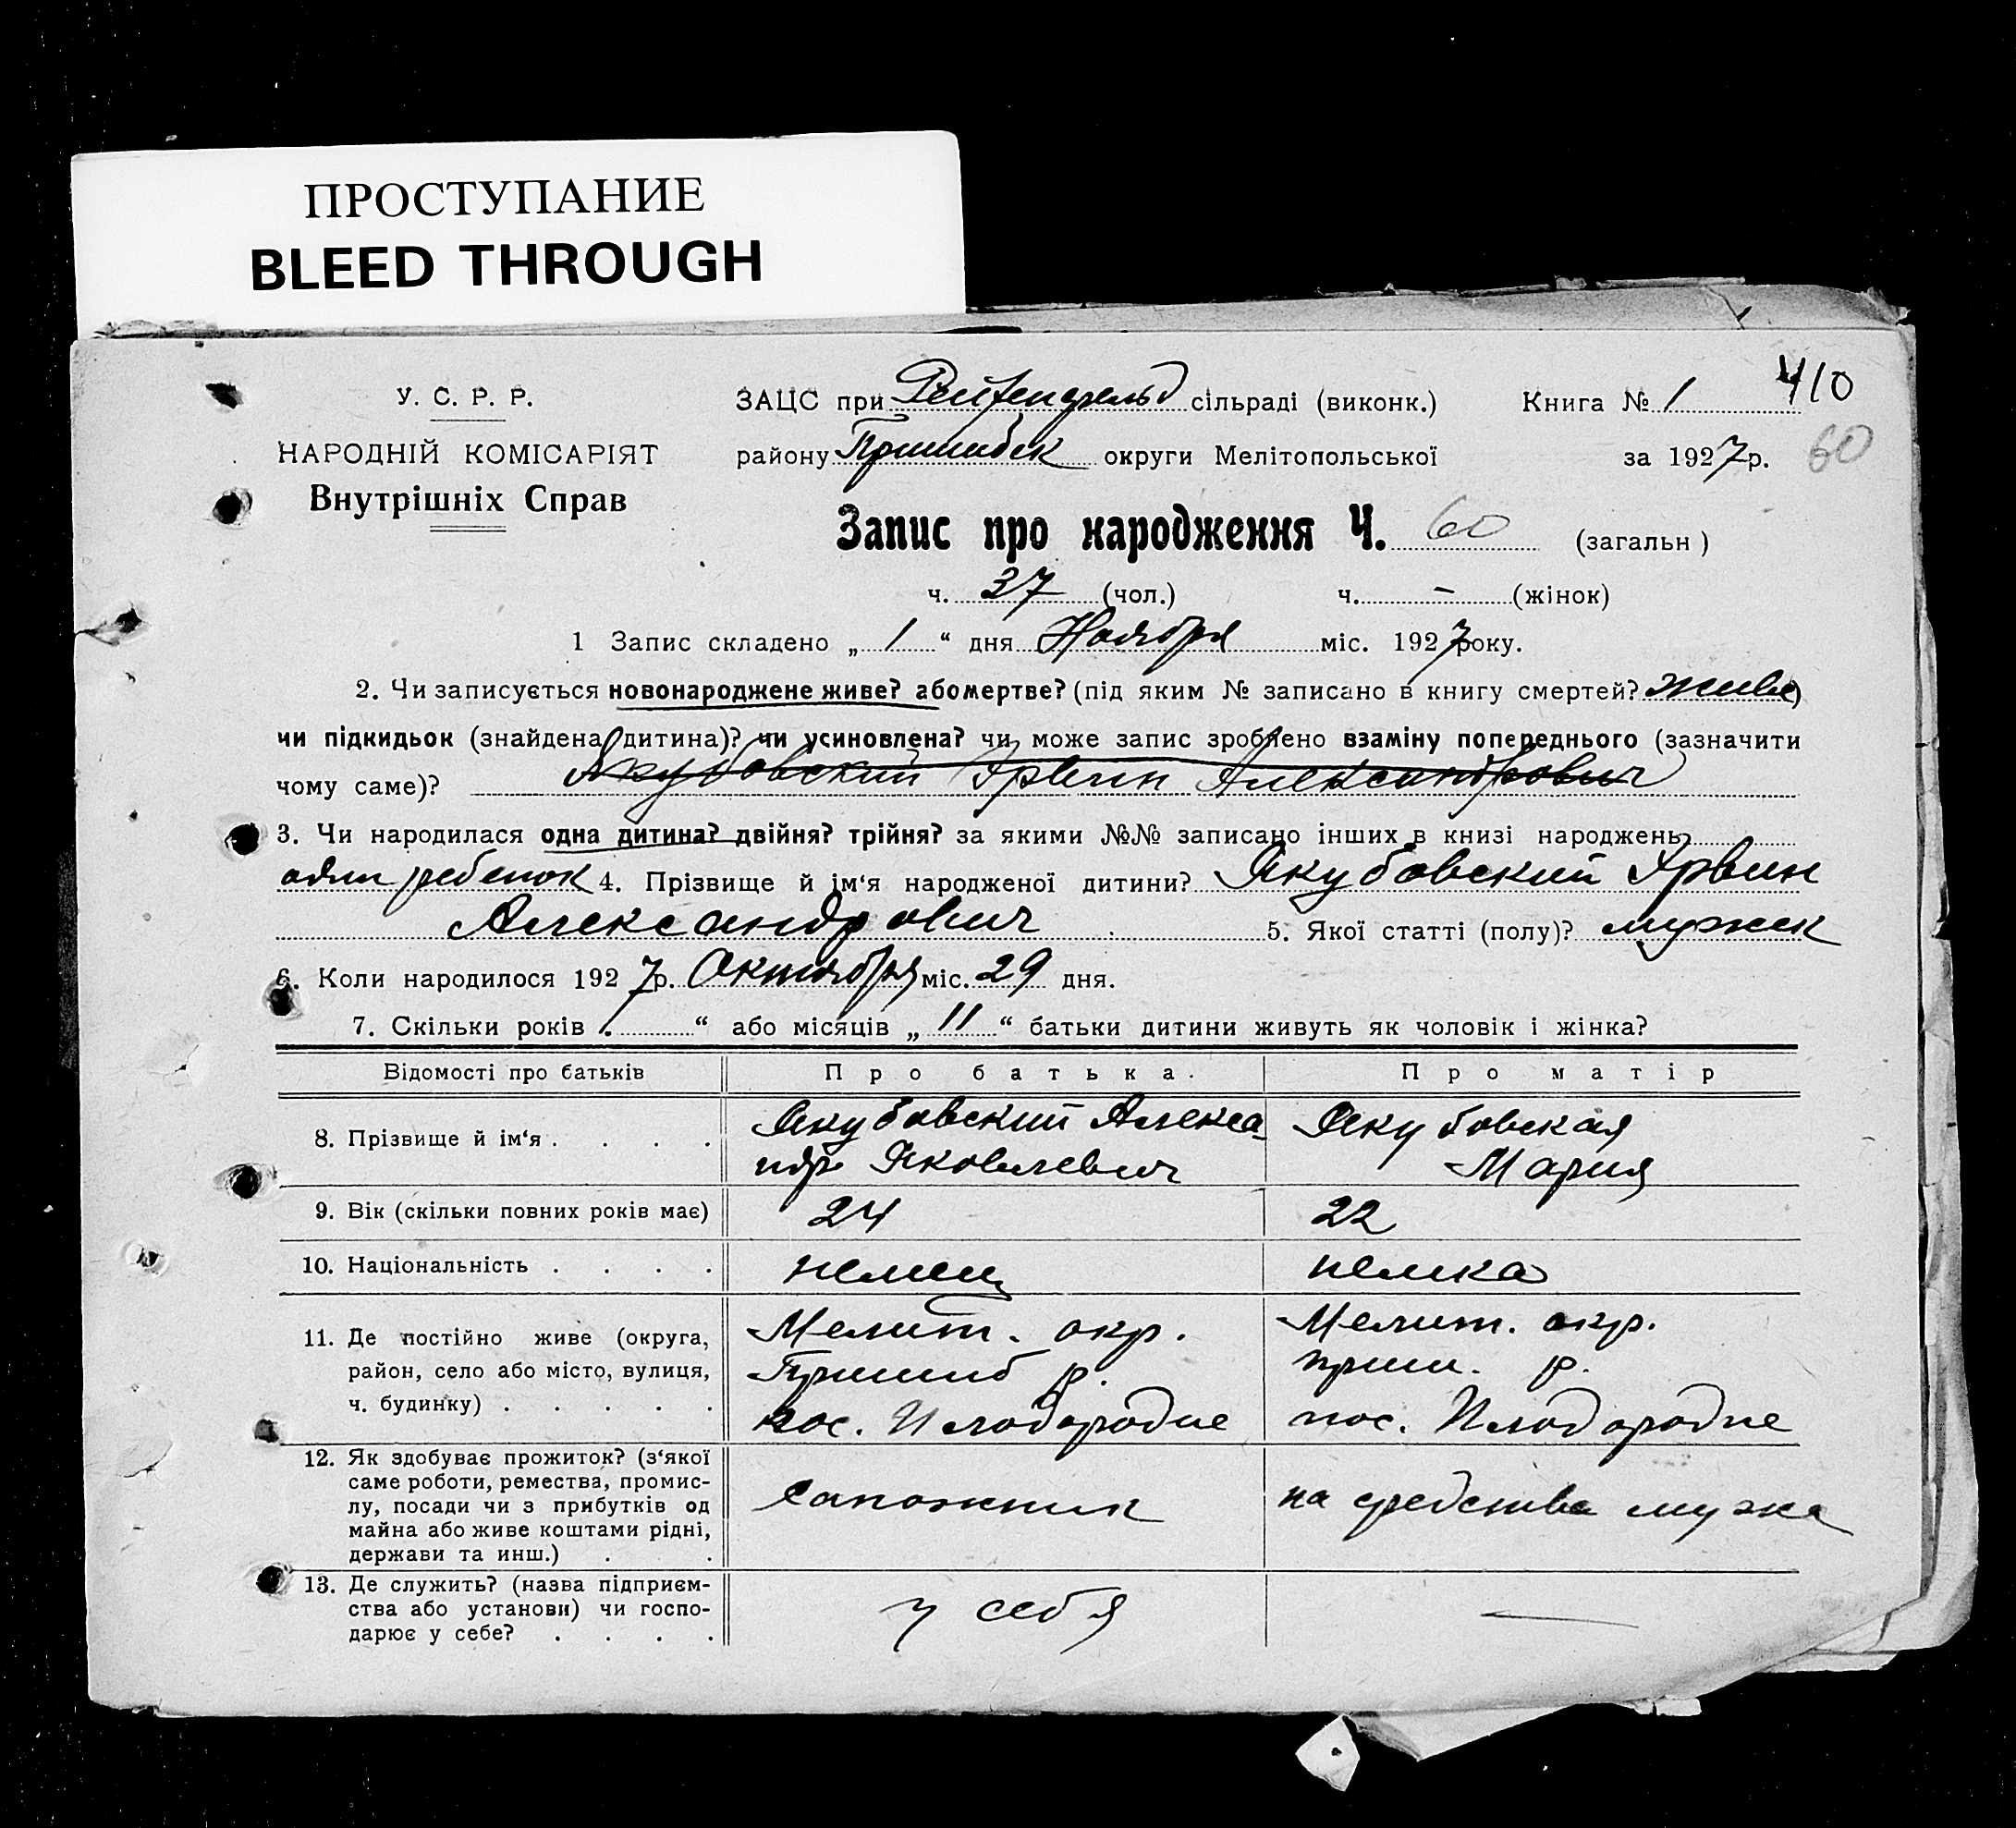 ПРОСТУПАНИЕ
BLEED THROUGH
У. С. Р. Р.
НАРОДНІЙ КОМІСАРІЯТ
Внутрішніх Справ
ЗАЦС при Рейхенфельд сільраді (виконк.) Книга № 1 410
району Пришибск округи Мелітопольської за 1927 р. 60
Запис про народження Ч. 60 (загальн)
ч. 37 (чол.) ч. — (жінок)
1 Запис складено „1“ дня Ноября міс. 1927 року.
2. Чи записується новонароджене живе? або мертве? (під яким № записано в книгу смертей? живе)
чи підкидьок (знайдена дитина)? чи усиновлена? чи може запис зроблено взаміну попереднього (зазначити
чому саме)? Якубовский Ярвин Александрович
3. Чи народилася одна дитина? двійня? трійня? за якими №№ записано інших в книзі народжень
один ребенок 4. Прізвище й ім‘я народженої дитини? Якубовский Ярвин
Александрович 5. Якої статті (полу)? мужск
6. Коли народилося 1927 р. Октября міс. 29 дня.
7. Скільки років „ “ або місяців „11“ батьки дитини живуть як чоловік і жінка?
Відомості про батьків Про батька. Про матір
8. Прізвище й ім‘я . . . . Якубовский Алекса- Якубовская
ндр Яковлевич Мария
9. Вік (скільки повних років має) 24 22
10. Національність . . . . немец немка
11. Де постійно живе (округа, Мелит. окр. Мелит. окр.
район, село або місто, вулиця, Пришиб р. приш. р.
ч. будинку) . . . . . пос. Плодородне пос. Плодородне
12. Як здобуває прожиток? (з‘якої
саме роботи, ремества, промис-
лу, посади чи з прибутків од сапожник на средства мужа
майна або живе коштами рідні,
держави та инш.) . .
13. Де служить? (назва підприєм-
ства або установи) чи госпо- у себя —
дарює у себе? . . . .